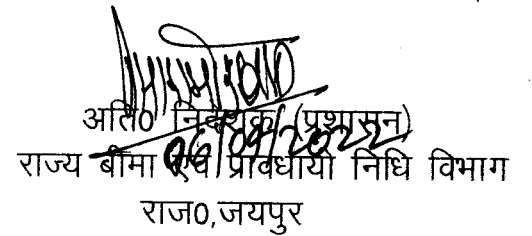 अति0 निदेशक (प्रशासन)
राज्य बीमा एवं प्रावधायी निधि विभाग
राज0,जयपुर